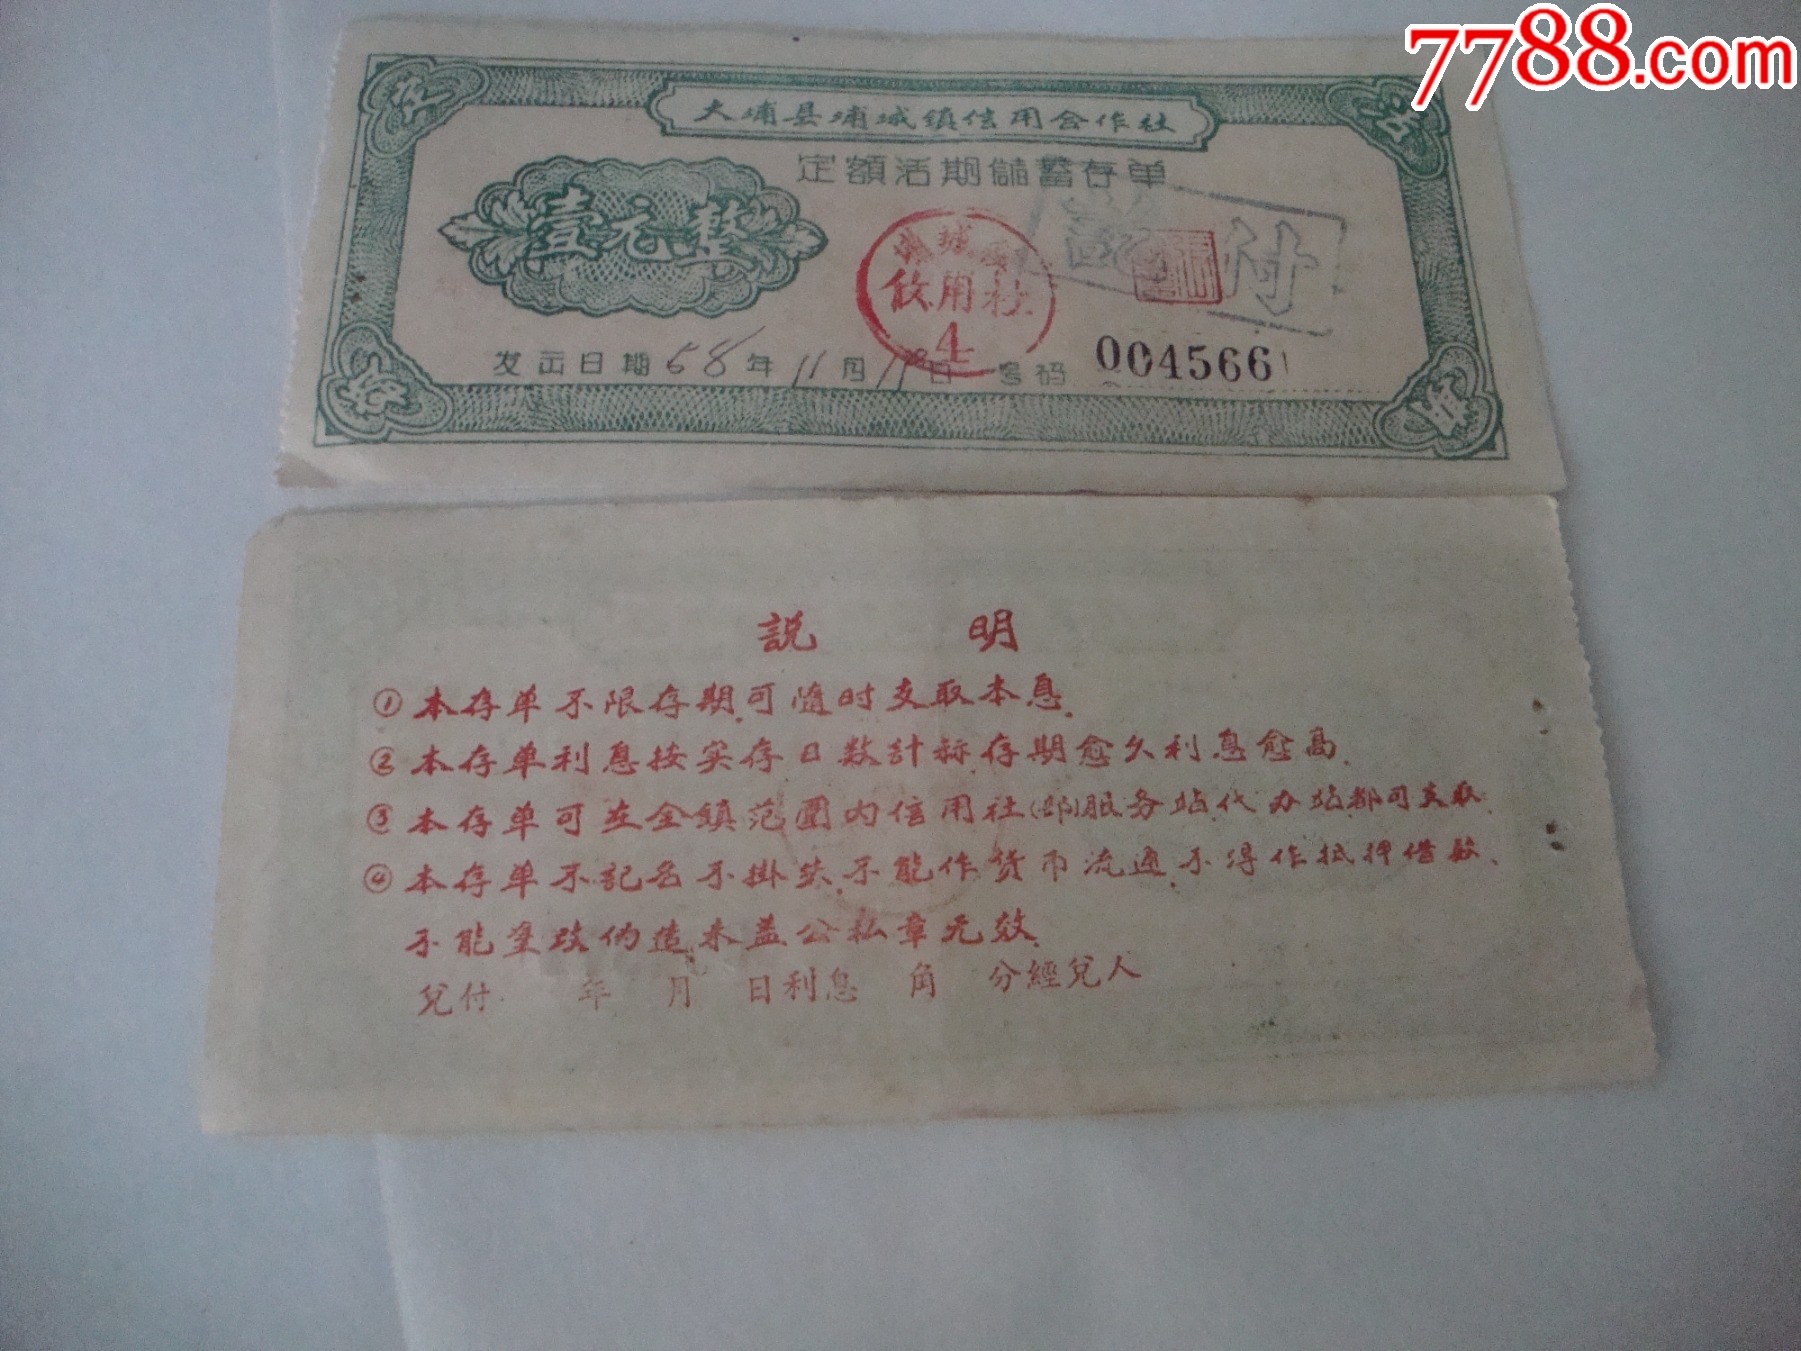 7788.com
大埔县埔城镇信用合作社
定額活期儲蓄存单
壹元整
付
埔城
信用社
4
发出日期 58年 11月 19日 号码 004566
説 明
①本存单不限存期,可隨时支取本息.
②本存单利息按实存日数計称,存期愈久利息愈高.
③本存单可在全鎮范圍内信用社(部)服务站代办站都可支取.
④本存单不記名不掛失,不能作货币流通,不得作抵押借款、
不能塗改伪造,未盖公私章无效.
兌付 年 月 日利息 角 分經兌人